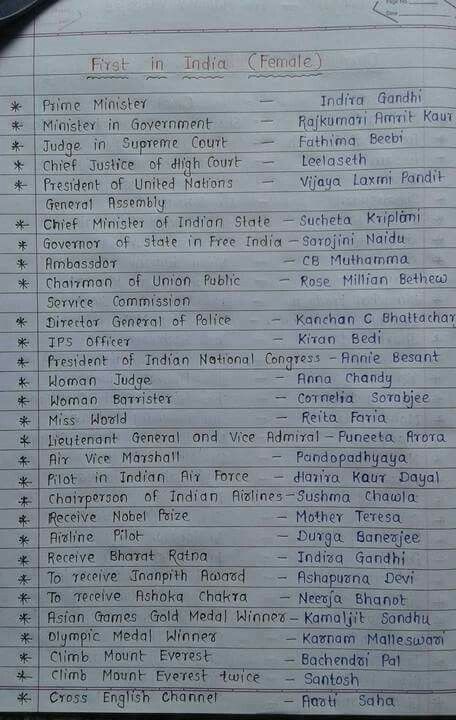 Page No.
Date
First in India (Female)
* Prime Minister — Indira Gandhi
* Minister in Government — Rajkumari Amrit Kaur
* Judge in Supreme Court — Fathima Beebi
* Chief Justice of High Court — Leelaseth
* President of United Nations — Vijaya Laxmi Pandit
General Assembly
* Chief Minister of Indian State — Sucheta Kriplani
* Governor of state in Free India — Sarojini Naidu
* Ambassdor — CB Muthamma
* Chairman of Union Public — Rose Millian Bethew
Service Commission
* Director General of Police — Kanchan C Bhattachar
* IPS Officer — Kiran Bedi
* President of Indian National Congress - Annie Besant
* Woman Judge — Anna Chandy
* Woman Barrister — Cornelia Sorabjee
* Miss World — Reita Faria
* Lieutenant General and Vice Admiral - Puneeta Arora
* Air Vice Marshall — Pandopadhyaya
* Pilot in Indian Air Force — Harira Kaur Dayal
* Chairperson of Indian Airlines - Sushma Chawla
* Receive Nobel Prize — Mother Teresa
* Airline Pilot — Durga Banerjee
* Receive Bharat Ratna — Indira Gandhi
* To receive Jnanpith Award — Ashapurna Devi
* To receive Ashoka Chakra — Neerja Bhanot
* Asian Games Gold Medal Winner - Kamaljit Sandhu
* Olympic Medal Winner — Karnam Malleswari
* Climb Mount Everest — Bachendri Pal
* Climb Mount Everest twice — Santosh
* Cross English Channel — Aarti Saha